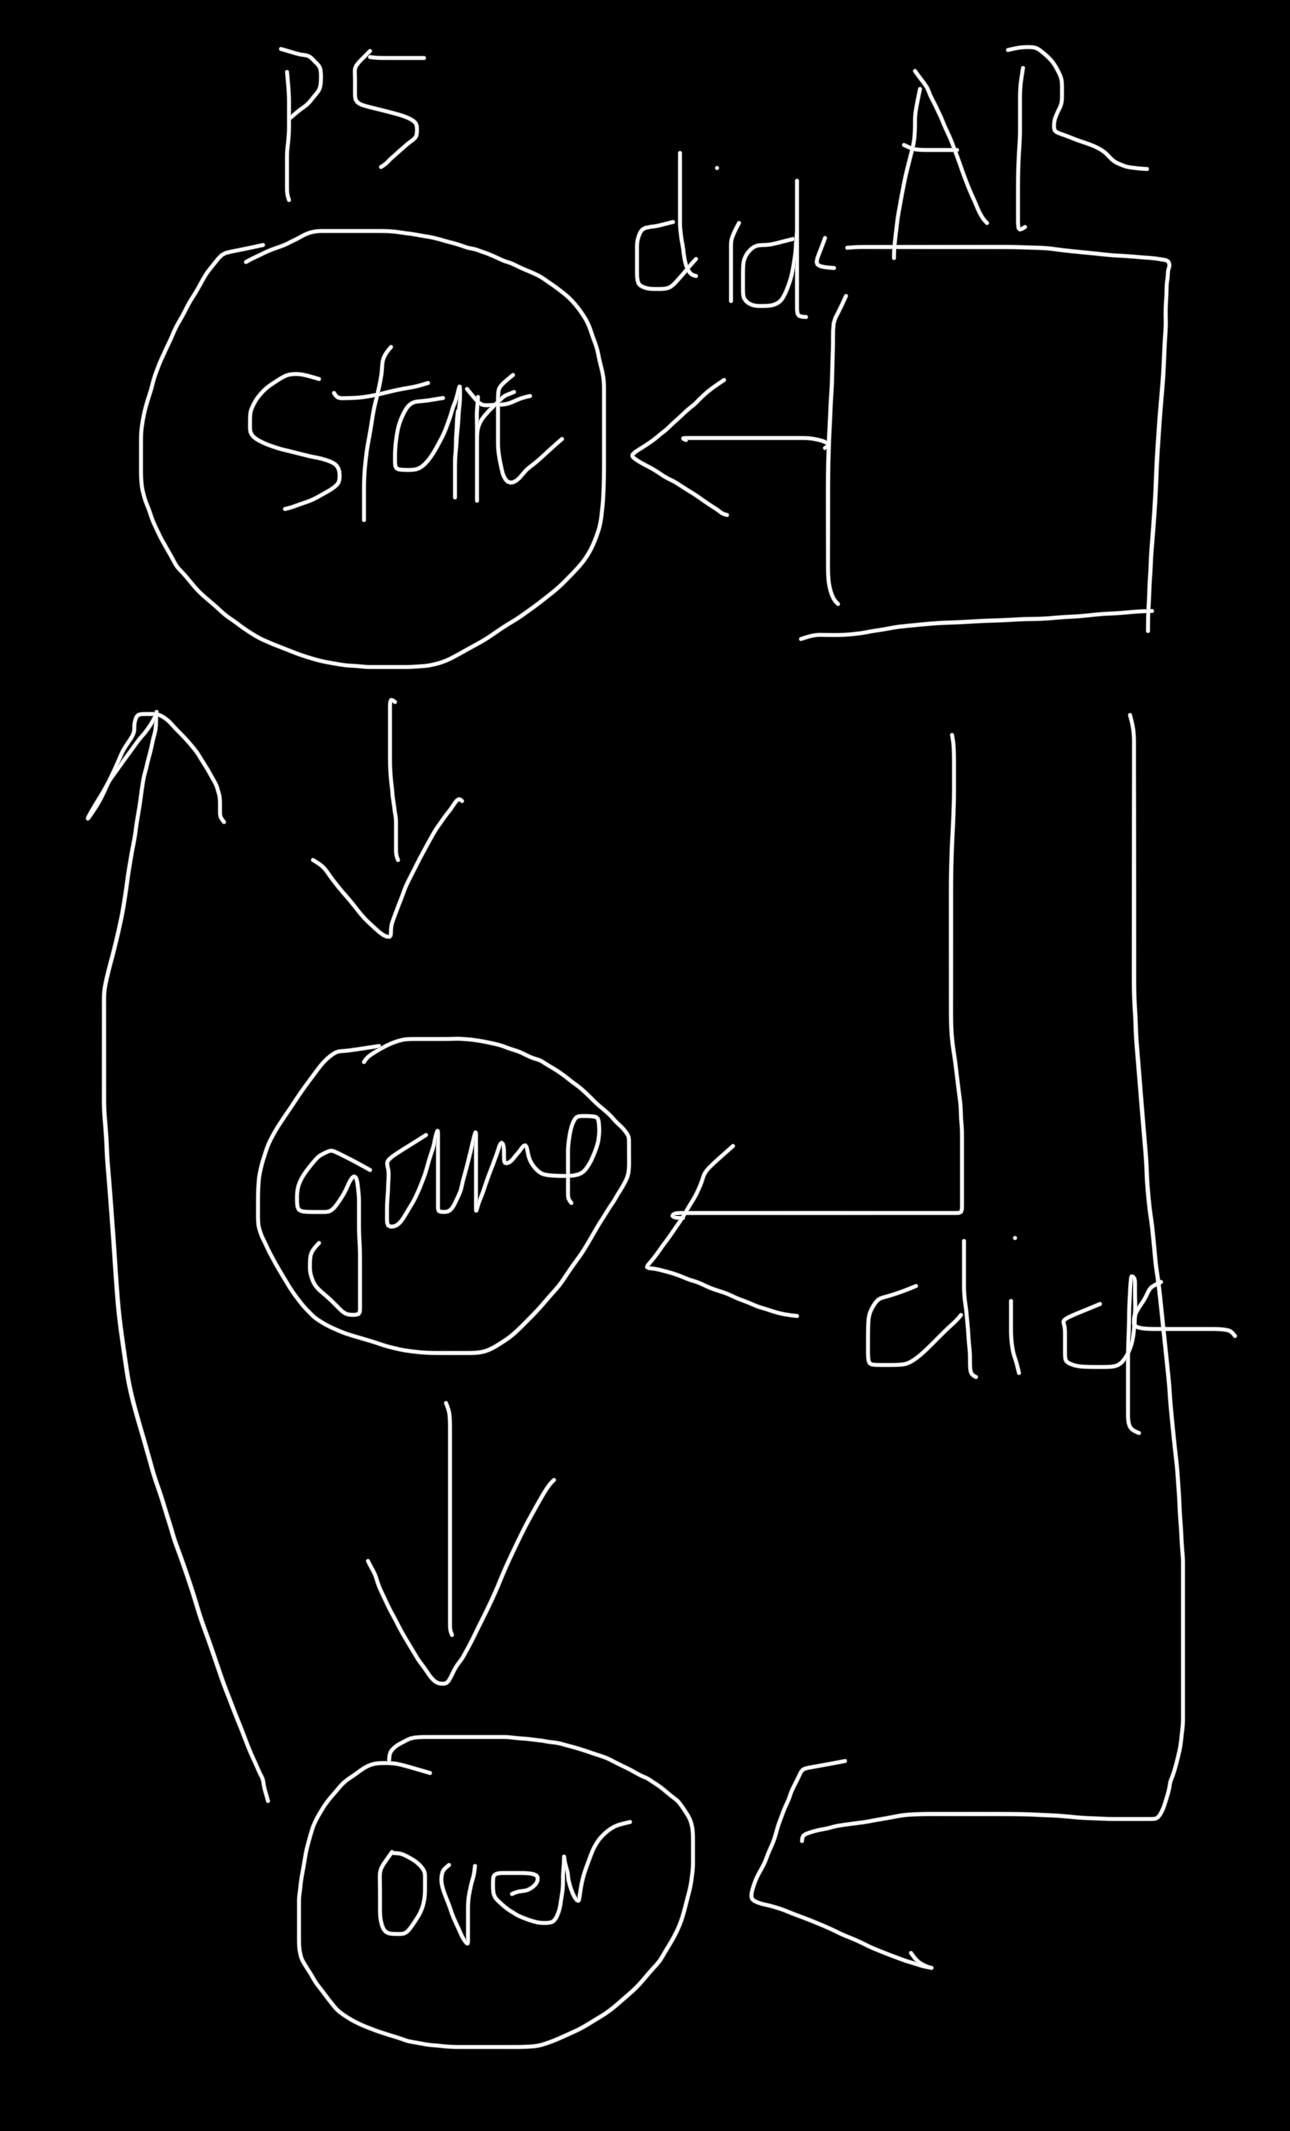 P5
AR
click
start
game
click
over